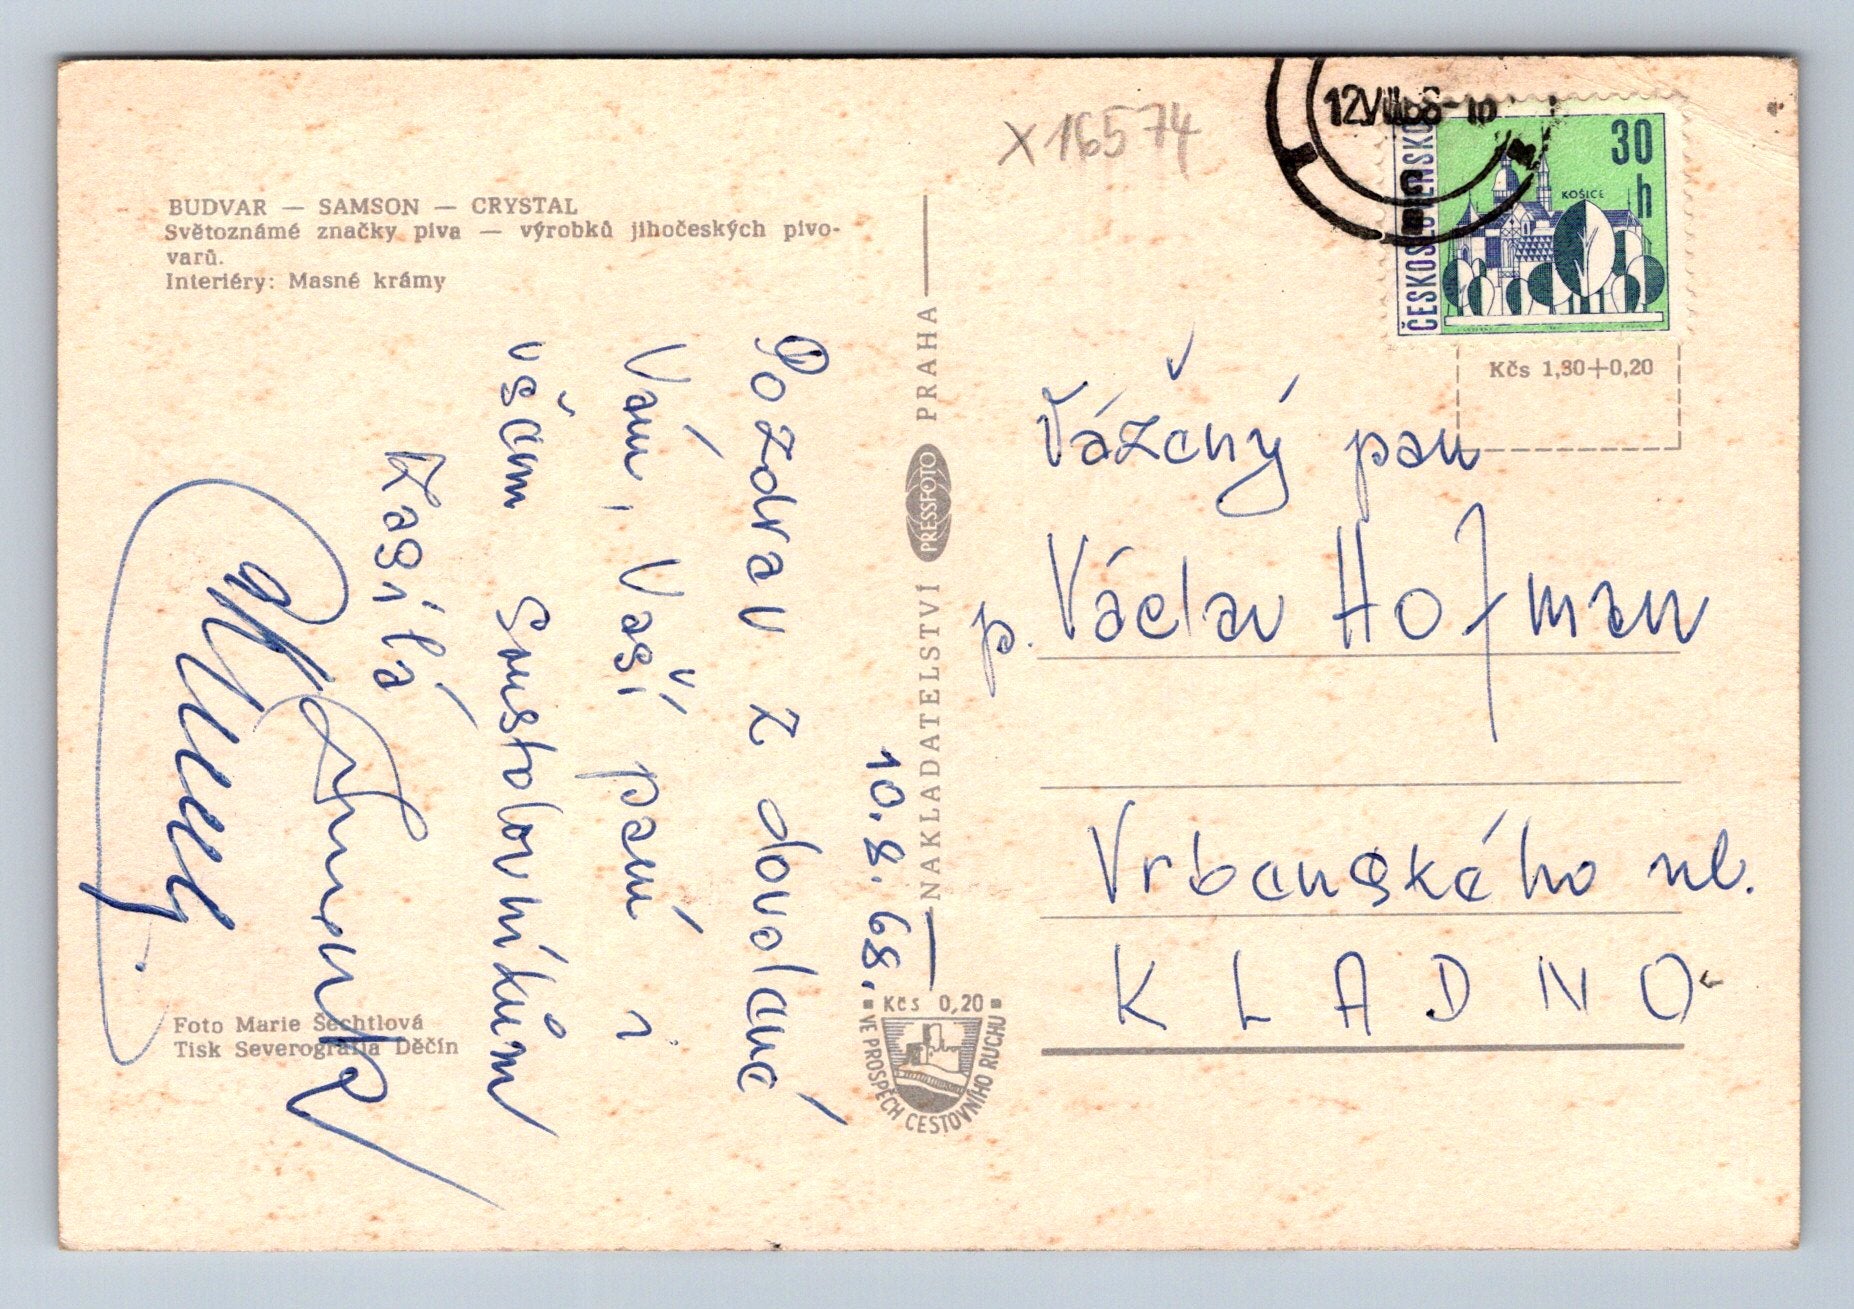 x 16574
12.VIII.68-16
ČESKOSLOVENSKO
30 h
KOŠICE
BUDVAR — SAMSON — CRYSTAL
Světoznámé značky piva — výrobků jihočeských pivo-
varů.
Interiéry: Masné krámy
Kčs 1,80+0,20
10.8.68.
Pozdrav z dovolené
Vám, Vaší paní i
všem soustolovníkům
zasílá
Foto Marie Šechtlová
Tisk Severografia Děčín
NAKLADATELSTVÍ PRESSFOTO PRAHA
Kčs 0,20
VE PROSPĚCH CESTOVNÍHO RUCHU
Vážený pan
p. Václav Hofman
Vrbenského ul.
KLADNO